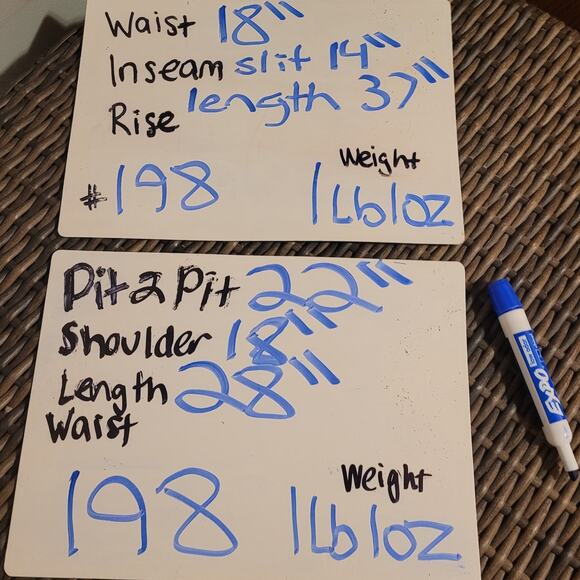 Waist 18"
Inseam slit 14"
Rise length 37"
Weight
#198 1Lb1oz
Pit2Pit 22"
Shoulder 18"
Length 28"
Waist
Weight
198 1Lb1oz
EXPO